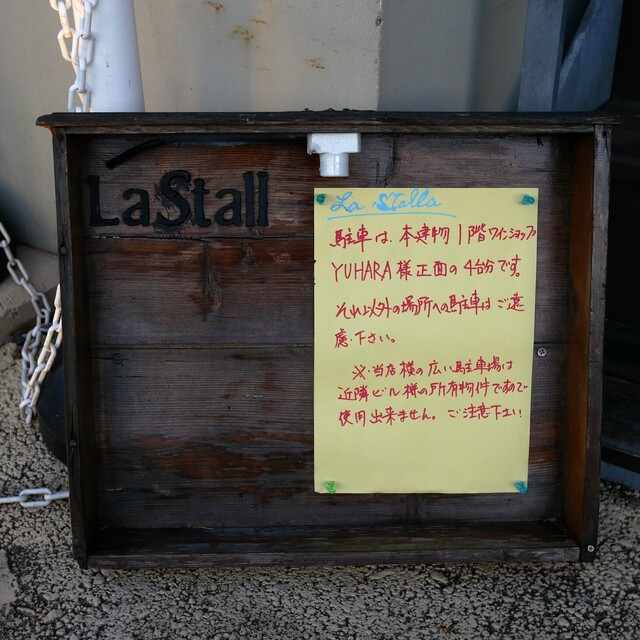 LaStall
La Stalla
駐車は、本建物1階ワインショップ
YUHARA様正面の4台分です。
それ以外の場所への駐車はご遠
慮下さい。
※当店横の広い駐車場は
近隣ビル様の所有物件であり
使用出来ません。ご注意下さい